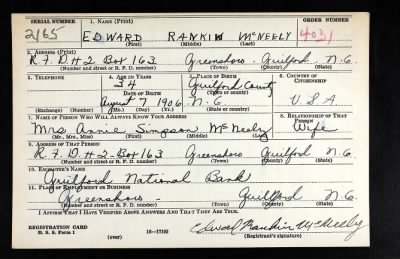 SERIAL NUMBER 1. NAME (Print) ORDER NUMBER
2165 EDWARD RANKIN McNEELY 4031
(First) (Middle) (Last)
2. ADDRESS (Print)
R.F.D #2 Box 163 Greensboro - Guilford N.C.
(Number and street or R. F. D. number) (Town) (County) (State)
3. TELEPHONE 4. AGE IN YEARS 5. PLACE OF BIRTH 6. COUNTRY OF CITIZENSHIP
34 Guilford County
DATE OF BIRTH (Town or county)
August 7 1906 N.C. U.S.A
(Exchange) (Number) (Mo.) (Day) (Yr.) (State or country)
7. NAME OF PERSON WHO WILL ALWAYS KNOW YOUR ADDRESS 8. RELATIONSHIP OF THAT PERSON
Mrs. Annie Simpson McNeely Wife
(Mr., Mrs., Miss) (First) (Middle) (Last)
9. ADDRESS OF THAT PERSON
R.F.D #2 - Box 163 Greensboro Guilford N.C.
(Number and street or R. F. D. number) (Town) (County) (State)
10. EMPLOYER'S NAME
Guilford National Bank
11. PLACE OF EMPLOYMENT OR BUSINESS
Greensboro - Guilford N.C.
(Number and street or R. F. D. number) (Town) (County) (State)
I AFFIRM THAT I HAVE VERIFIED ABOVE ANSWERS AND THAT THEY ARE TRUE.
REGISTRATION CARD
D. S. S. Form 1 (over) 16—17105 Edward Rankin McNeely
(Registrant's signature)